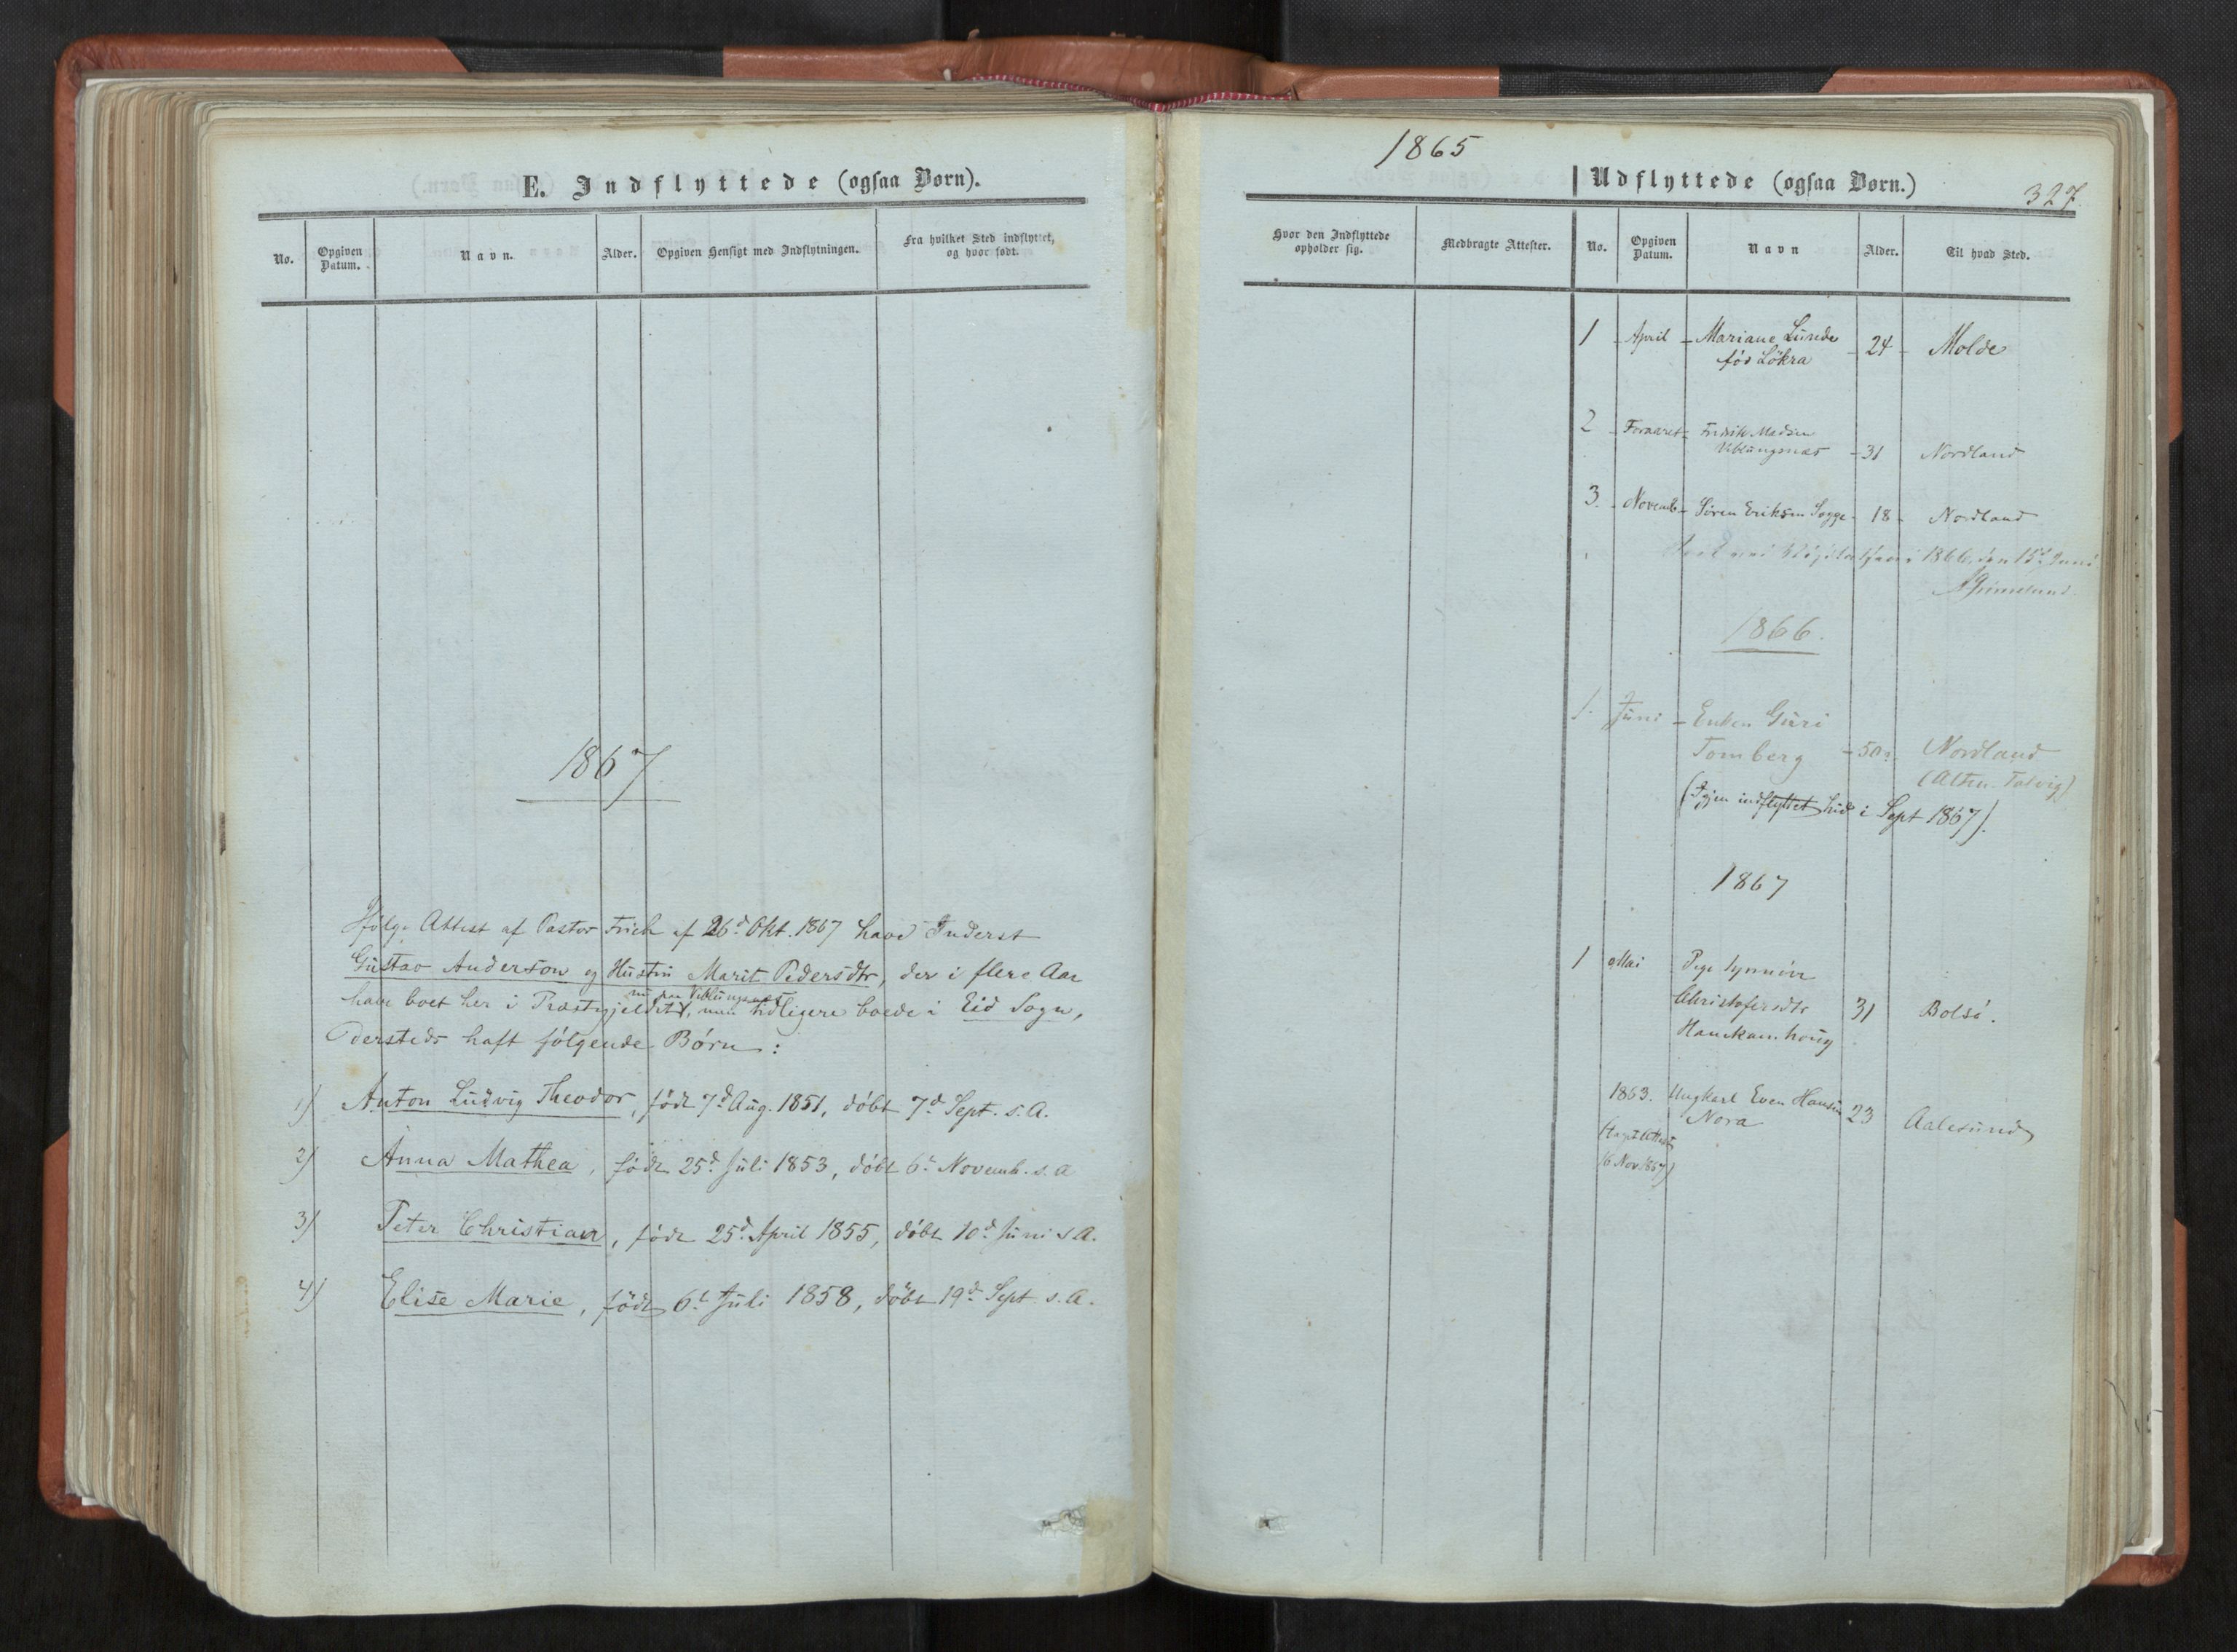 E. Indflyttede (ogsaa Børn).
No.
Opgiven Datum.
Navn.
Alder.
Opgiven Hensigt med Indflytningen.
Fra hvilket Sted indflyttet, og hvor født.
1867.
Ifølge Attest af Pastor Frich af 26d Okt. 1867 have Inderst
Gustav Anderson og Hustru Marit Pedersdtr, der i flere Aar
nu paa Veblungsnæs
have boet her i Præstegjeldet, men tidligere boede i Eid Sogn,
dersteds haft følgende Børn:
1) Anton Ludvig Theodor, født 7d Aug. 1851, døbt 7d Sept. s.A.
2) Anna Mathea, født 25d Juli 1853, døbt 6t Novemb. s.a
3) Peter Christian, født 25d April 1855, døbt 10d Juni s A.
4) Elise Marie, født 6t Juli 1858, døbt 19d Sept s.A.
1865
Udflyttede (ogsaa Børn.)
327.
Hvor den Indflyttede opholder sig.
Medbragte Attester.
No.
Opgiven Datum.
Navn
Alder.
Til hvad Sted.
1 April - Mariane Lunde - 24 - Molde
fød Løkra
2 Foraaret - Fredrik Madsen
Veblungsnæs - 31 Nordland
3. Novemb - Søren Eriksen Sogge - 18 - Nordland
1866, den 15d Juni
1866.
1. Juni - Enken Guri
Tomberg - 50 Nordland
(Alten Talvig)
(Igjen indflyttet hid i Sept 1867).
1867
1 Mai Pige Synnøve
Christofersdtr 31 Bolsø.
Hanekamhoug
1863. Ungkarl Even Hansen 23 Aalesund
Nora
(taget Attest
16 Nov. 1867)